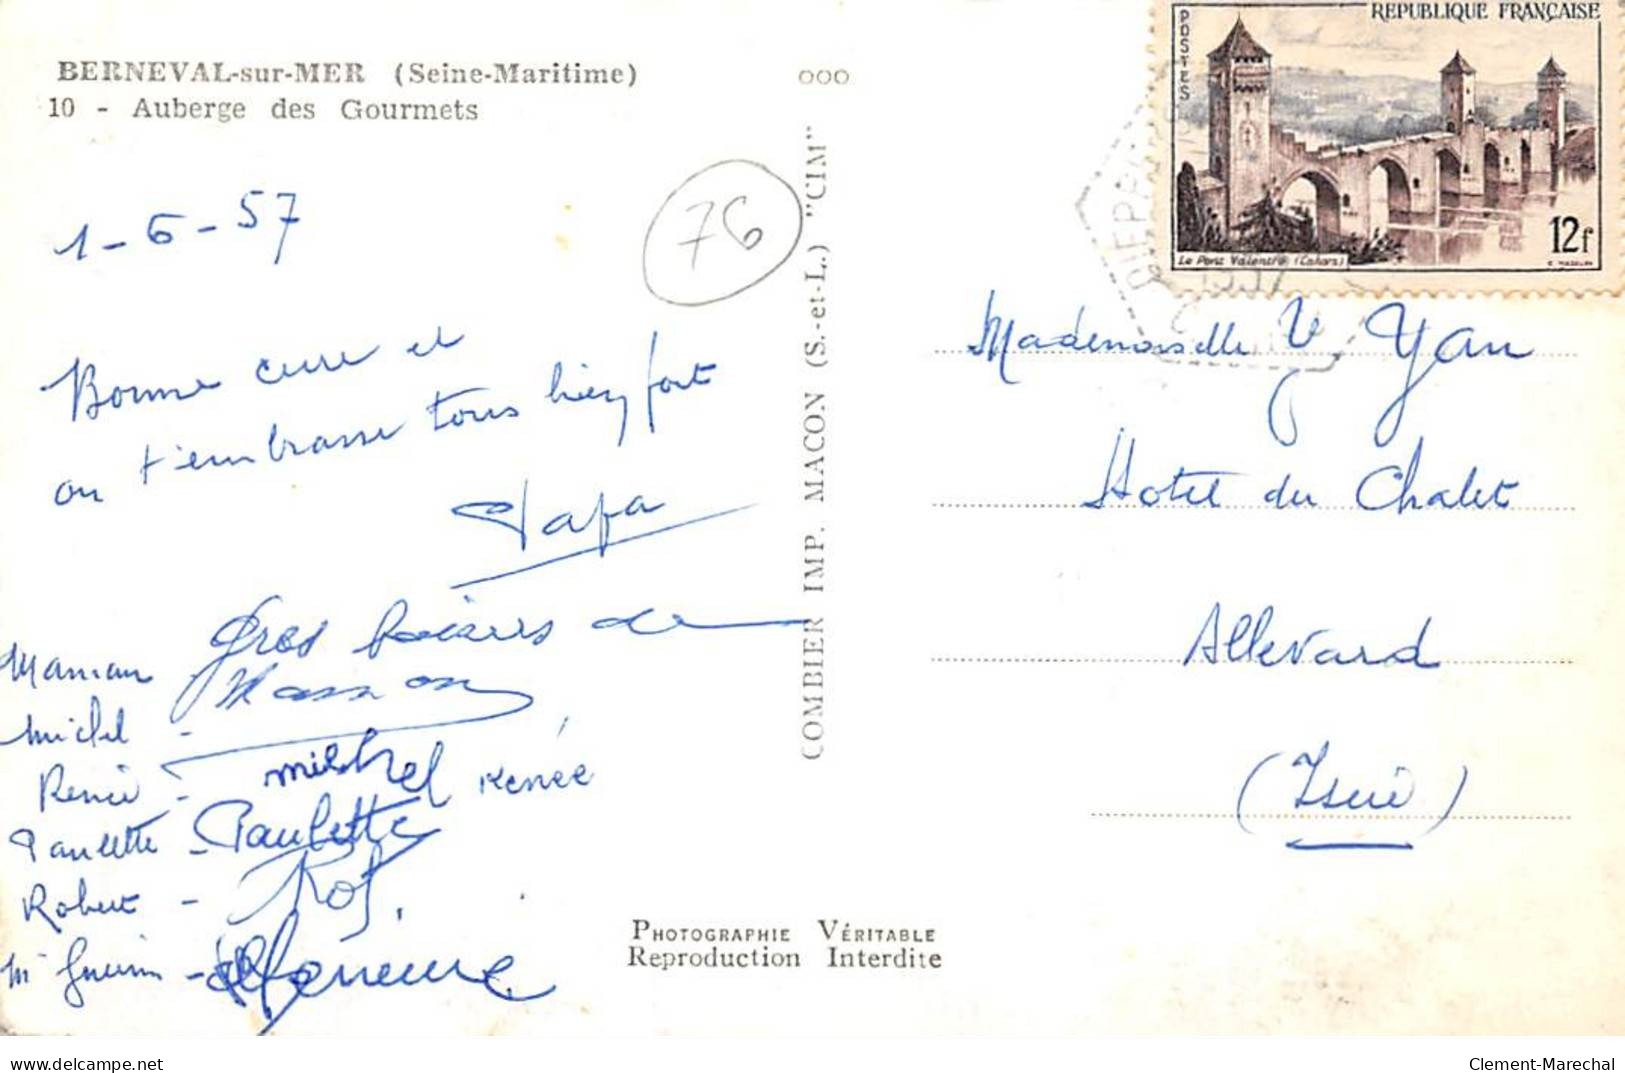 BERNEVAL-sur-MER (Seine-Maritime)
10 - Auberge des Gourmets
1-6-57
76
Bonne cure et
on t'embrasse tous bien fort
Papa
Gros baisers de
Maman
Michel -
Renée -
Michel Renée
Paulette - Paulette
Robert - Rob.
Mr Guérin -
COMBIER IMP. MACON (S.-et-L.) "CIM"
PHOTOGRAPHIE VÉRITABLE
Reproduction Interdite
REPUBLIQUE FRANÇAISE
POSTES
Le Pont Valentré (Cahors)
12f
DIEPPE
1957
Mademoiselle Y Yan
Hotel du Chalet
Allevard
(Isère)
delcampe.net
Clement-Marechal